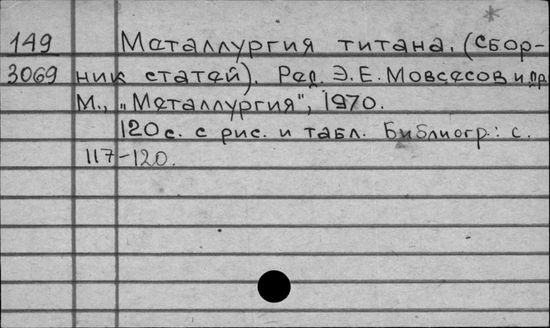 149 Металлургия титана. (Сбор-
3069 ник статей). Ред. Э.Е. Мовсесов и др.
М., "Металлургия", 1970.
120 с. с рис. и табл. Библиогр.: с.
117-120.